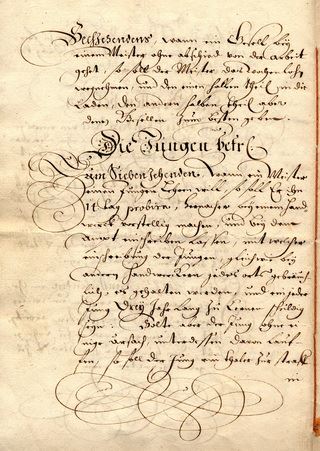 Sechsehendens, wann ein Gesell bey
einem Meister ohne abschied von der arbeit
gehet, so soll der Meister das wochen Lohn
und den einen halben theil in die
Laden, den andern halben theil aber
denen Gesellen zum besten geben.
Die Jungen betr.
Zum Siebenzehenden, wann ein Meister
einen Jungen lehren will, so soll Er ihn
14 tag probirn, hernacher
werck vorstellig machen, und bey dem
Ambt einschreiben lassen, mit welcher
einschreibung der Jungen, gleichwie bey
andern Handwerckern jedes orts gebräuch-
lich, es gehalten werden, und ein jeder
Jung Drey Jahr lang zu lernen schuldig
seyn. Solte aber der Jung ohne ei-
nige Ursach unterdessen darvon lauf-
fen, so soll der Jung ein thaler zur straff